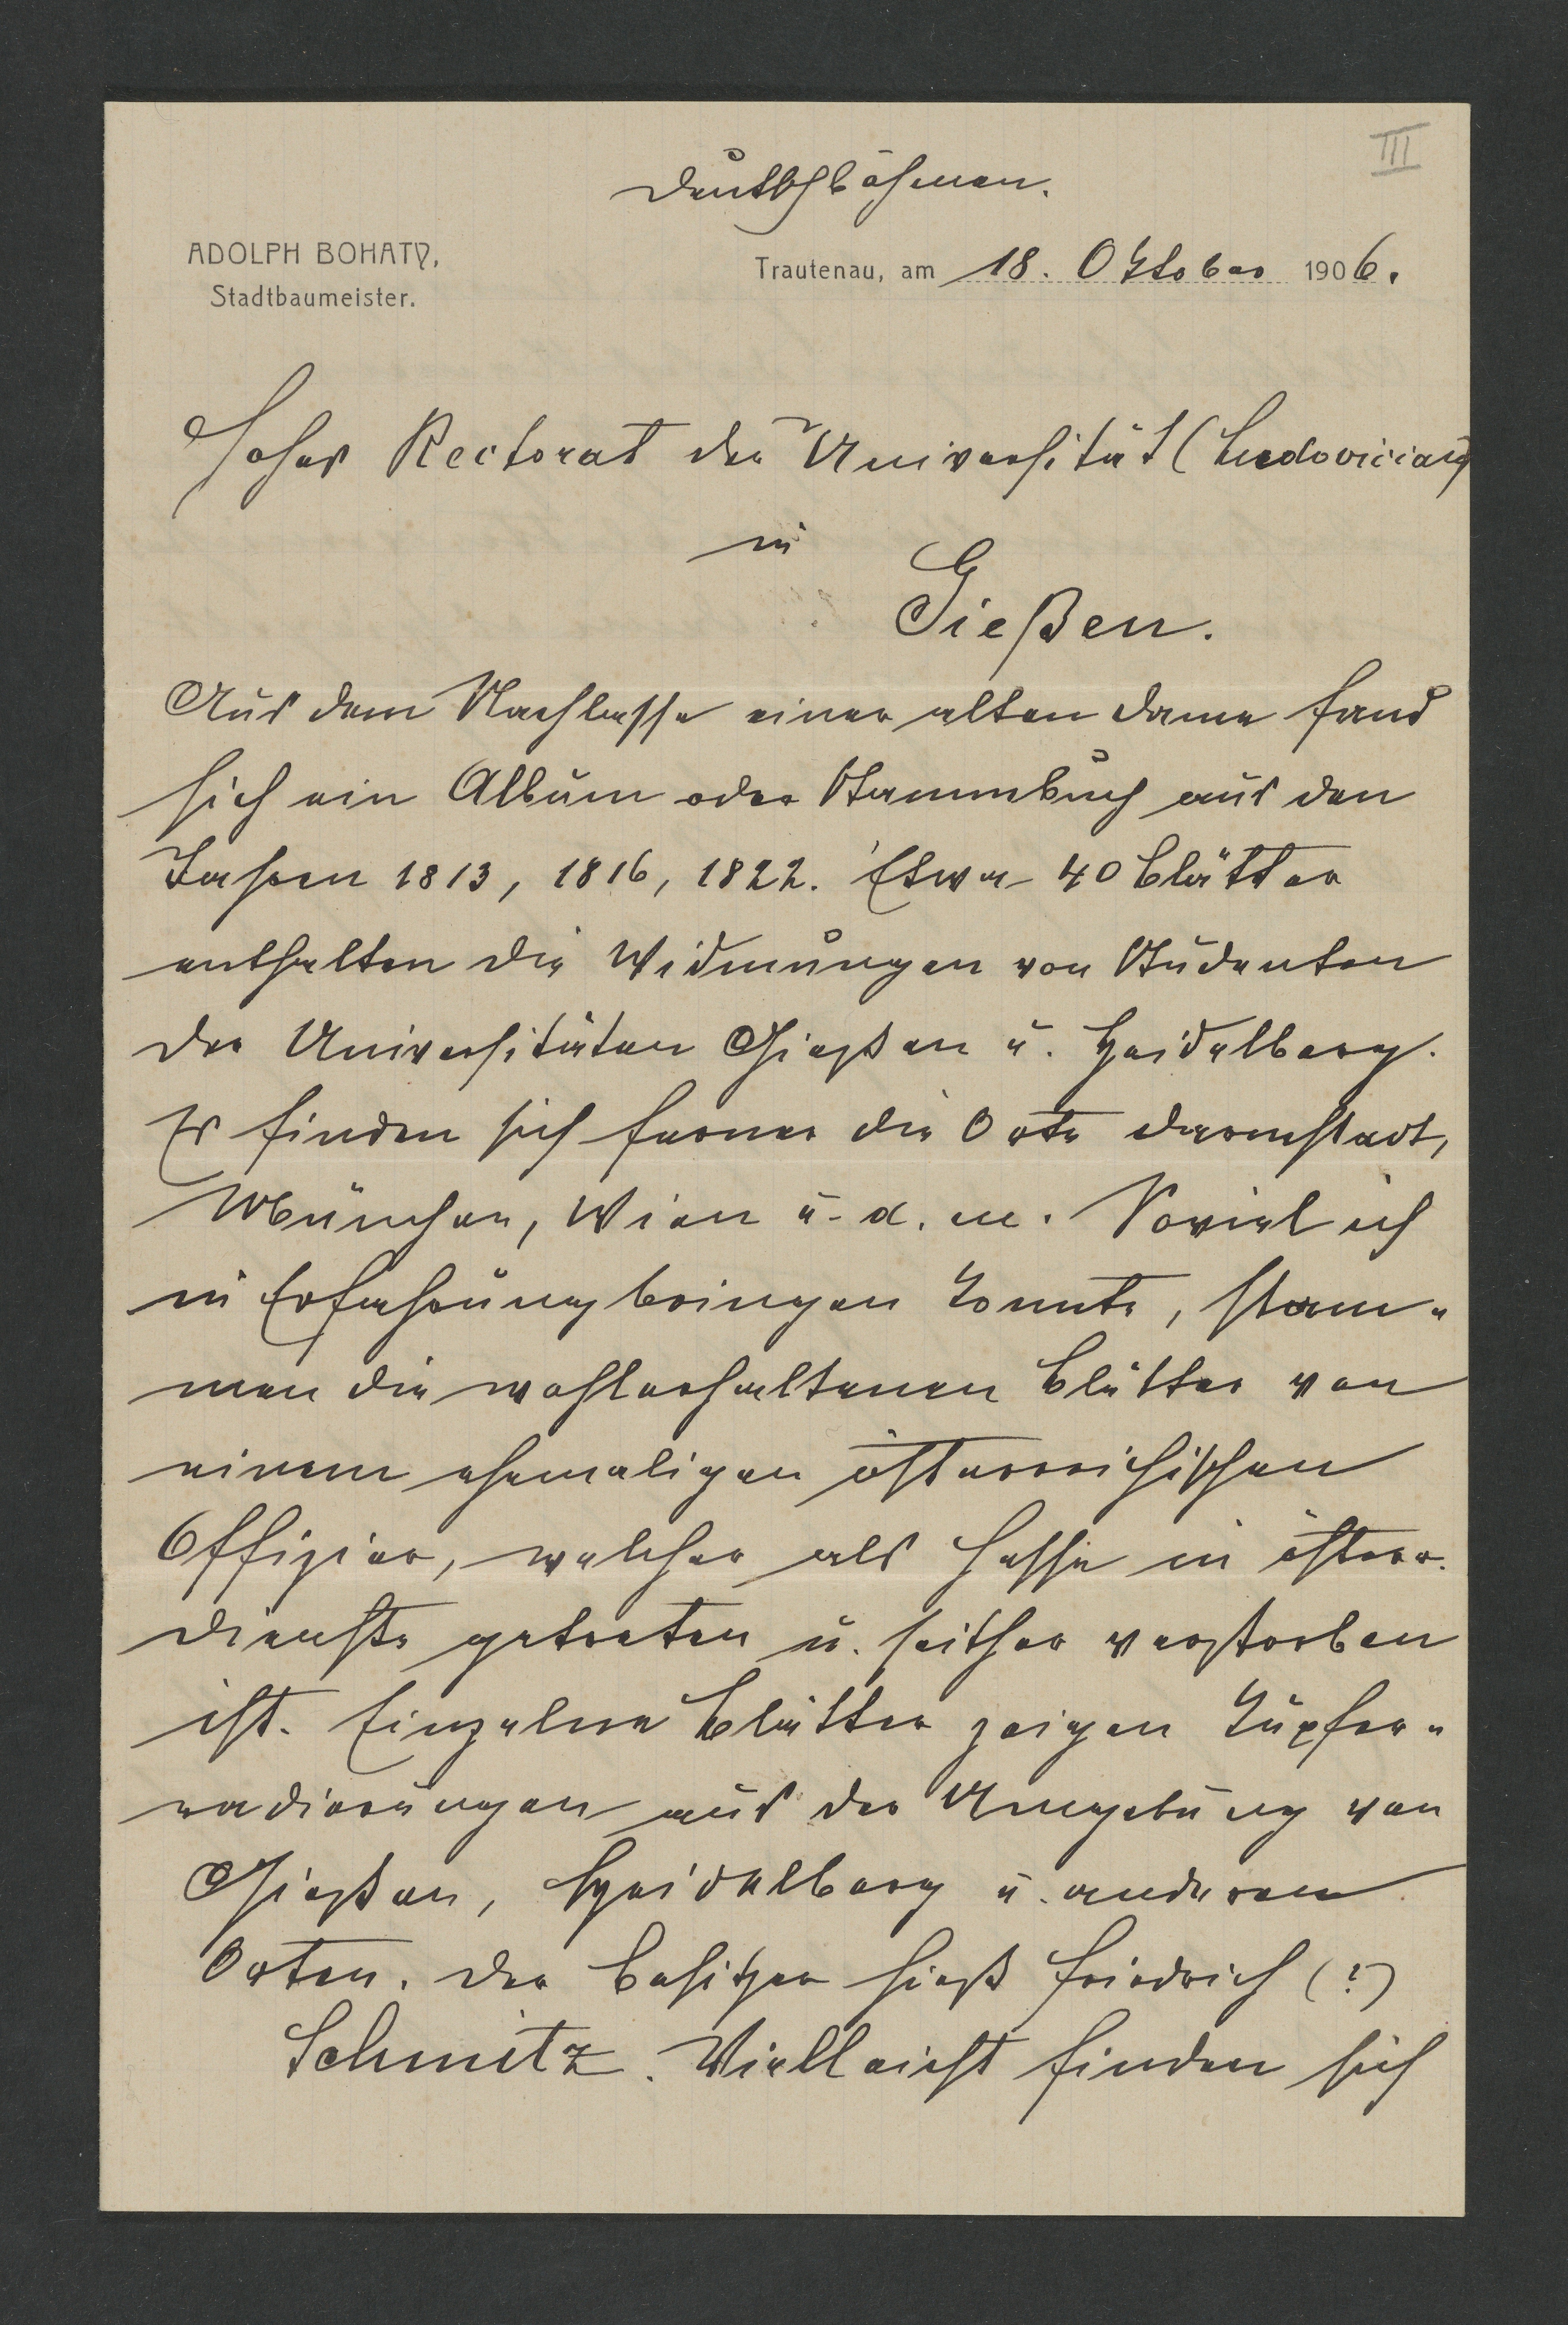 III
Deutschböhmen.
ADOLPH BOHATY,
Stadtbaumeister.
Trautenau, am 18. Oktober 1906.
Hohes Rectorat der Universität (Ludoviciana)
in
Gießen.
Aus dem Nachlasse einer alten Dame fand
sich ein Album oder Stammbuch aus den
Jahren 1813, 1816, 1822. Etwa 40 Blätter
enthalten die Widmungen von Studenten
der Universitäten Gießen u. Heidelberg.
Es finden sich ferner die Orte Darmstadt,
München, Wien u. a. m. Soviel ich
in Erfahrung bringen konnte, stam-
men die wohlerhaltenen Blätter von
einem ehemaligen österreichischen
Offizier, welcher als Hesse in österr.
Dienste getreten u. seither verstorben
ist. Einzelne Blätter zeigen Kupfer-
radierungen aus der Umgebung von
Gießen, Heidelberg u. anderen
Orten. Der Besitzer hieß Friedrich (?)
Schmitz. Vielleicht finden sich